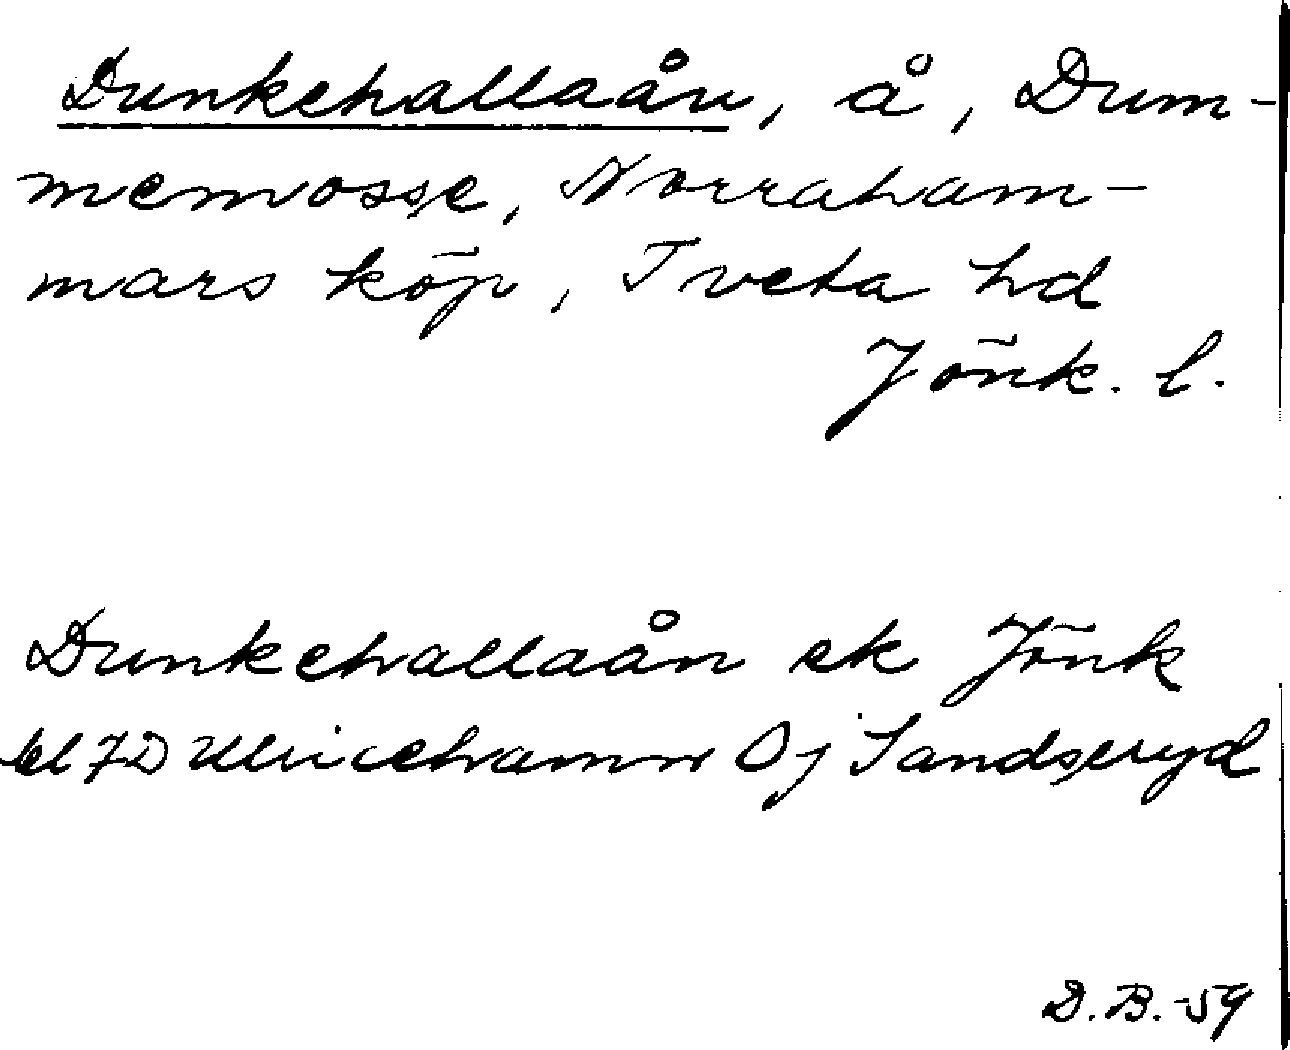 Dunkehallaån, å, Dum-
memosse, Norraham-
mars köp, Tveta hd
Jönk. l.
Dunkehallaån ek Jönk
bl 7D Ulricehamn Oj Sandseryd
D.B.-59